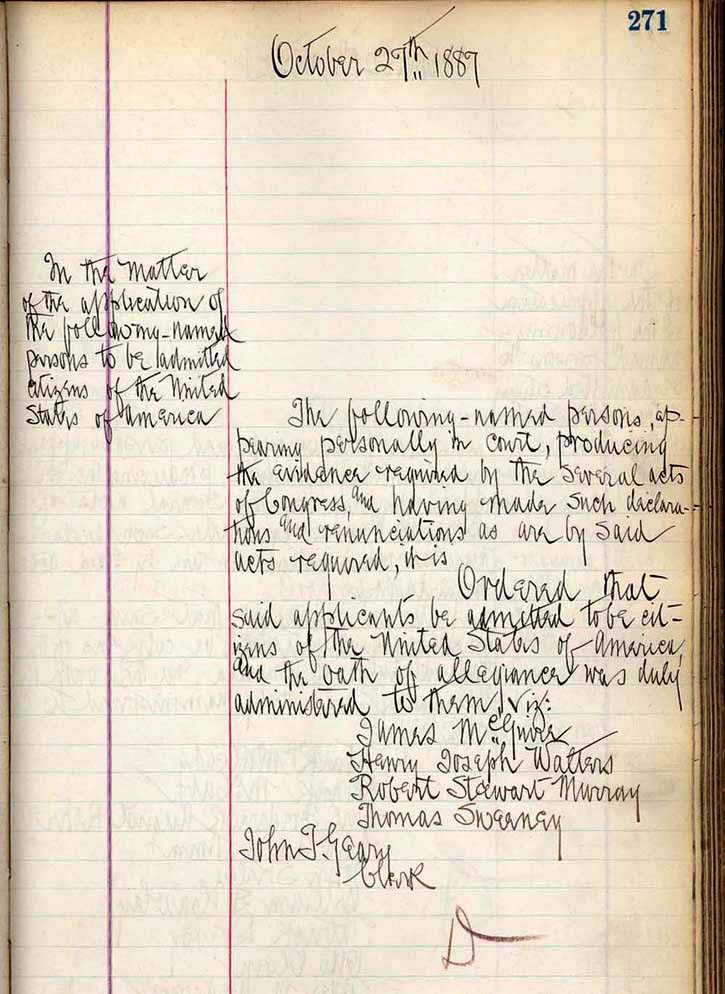 271
October 27th 1887
In the matter
of the application of
the following-named
persons to be admitted
citizens of the United
States of America
The following-named persons, ap-
pearing personally in court, producing
the evidence required by the several acts
of Congress, and having made such declara-
tions and renunciations as are by said
acts required, it is
Ordered that
said applicants be admitted to be cit-
izens of the United States of America,
and the oath of allegiance was duly
administered to them, viz:
James
Henry Joseph Walters
Robert Stewart Murray
Thomas Sweeney
John T. Geary
Clerk